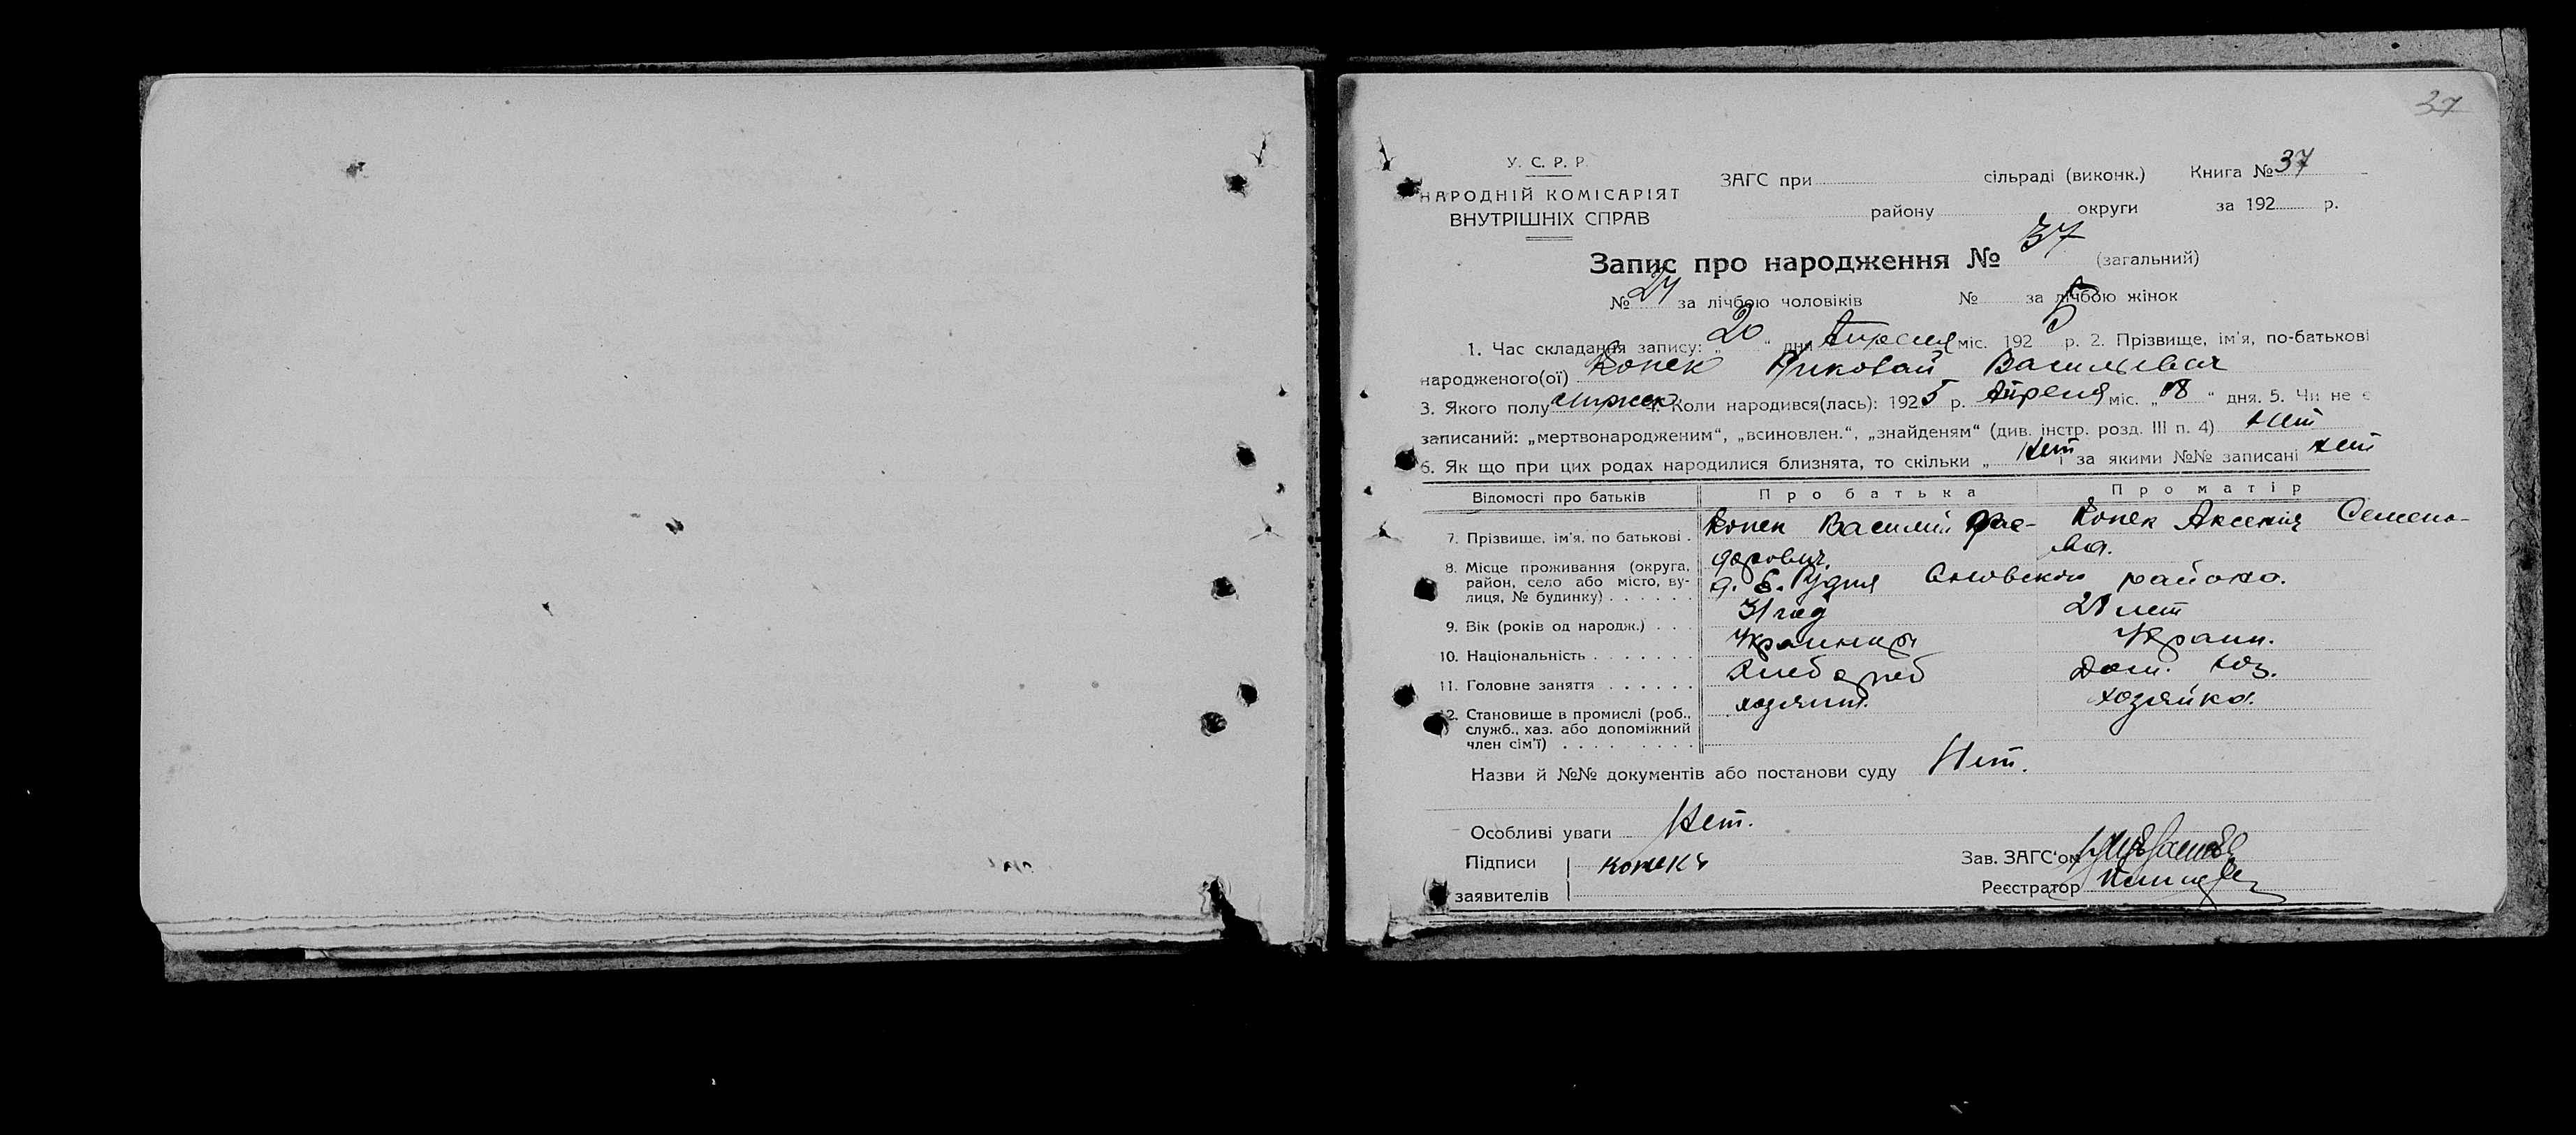 37
У. С. Р. Р.
НАРОДНІЙ КОМІСАРІЯТ
ВНУТРІШНІХ СПРАВ
ЗАГС при сільраді (виконк.) Книга № 37
району округи за 192 р.
Запис про народження № 37 (загальний)
№ 24 за лічбою чоловіків № за лічбою жінок
1. Час складання запису: „ 20 “ дня Апреля міс. 192 5 р. 2. Прізвище, ім'я, по-батькові
народженого(ої) Копек Николай Васильевич
3. Якого полу мужск. 4. Коли народився(лась): 192 5 р. Апреля міс. „ 18 “ дня. 5. Чи не є
записаний: „мертвонародженим“, „всиновлен.“, „знайденям“ (див. інстр. розд. III п. 4) Нет
6. Як що при цих родах народилися близнята, то скільки „ Нет і за якими №№ записані Нет
Відомості про батьків Про батька Про матір
7. Прізвище, ім'я, по батькові . Копек Василий Фео- Копек Аксения Семено-
дорович. ва.
8. Місце проживання (округа,
район, село або місто, ву-
лиця, № будинку) . . . . . . д. Рудня района.
9. Вік (років од народж.) . . . 31 год 28 лет
10. Національність . . . . . . . Украинец Украин.
11. Головне заняття . . . . . . Хлебороб Дом. хоз.
12. Становище в промислі (роб.,
служб., хаз. або допоміжний
член сім'ї) . . . . . . . . . хозяин. хозяйка.
Назви й №№ документів або постанови суду Нет.
Особливі уваги Нет.
Підписи Копекъ Зав. ЗАГС'ом
заявителів Реєстратор